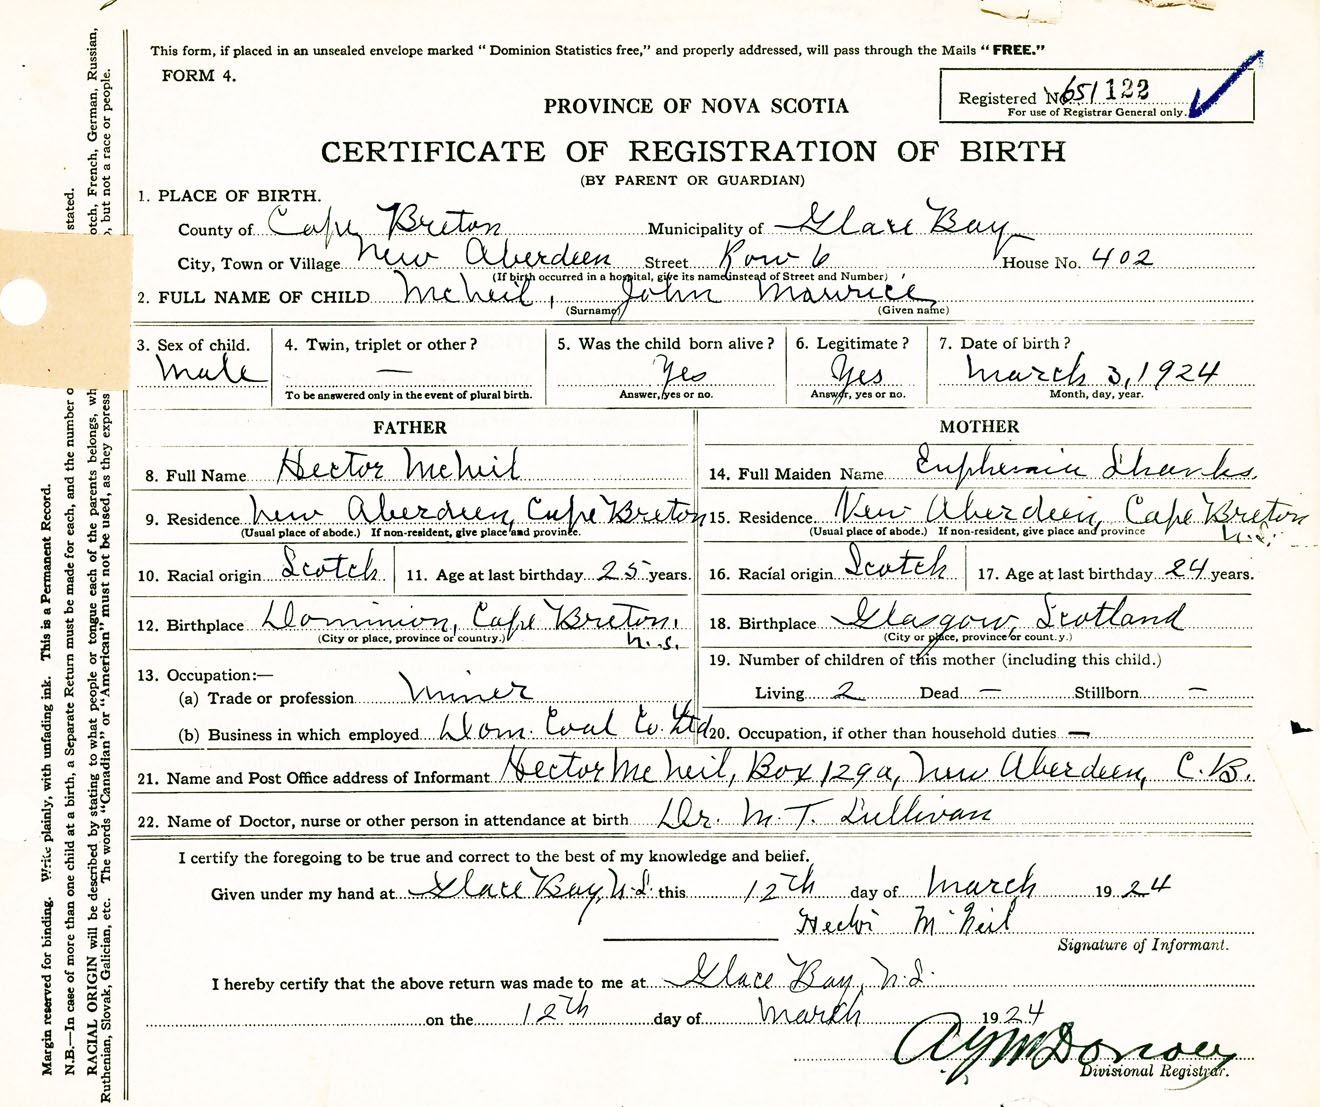 This form, if placed in an unsealed envelope marked “ Dominion Statistics free,” and properly addressed, will pass through the Mails “ FREE.”
FORM 4.
Registered No. 651122
For use of Registrar General only.
PROVINCE OF NOVA SCOTIA
CERTIFICATE OF REGISTRATION OF BIRTH
(BY PARENT OR GUARDIAN)
1. PLACE OF BIRTH.
County of Cape Breton Municipality of Glace Bay
City, Town or Village New Aberdeen Street Row 6 House No. 402
(If birth occurred in a hospital, give its name instead of Street and Number)
2. FULL NAME OF CHILD McNeil, John Maurice
(Surname) (Given name)
3. Sex of child. 4. Twin, triplet or other? 5. Was the child born alive? 6. Legitimate? 7. Date of birth?
Male — Yes Yes March 3, 1924
To be answered only in the event of plural birth. Answer, yes or no. Answer, yes or no. Month, day, year.
FATHER
8. Full Name Hector McNeil
9. Residence New Aberdeen, Cape Breton
(Usual place of abode.) If non-resident, give place and province.
10. Racial origin Scotch 11. Age at last birthday 25 years.
12. Birthplace Dominion, Cape Breton, N.S.
(City or place, province or country.)
13. Occupation:—
(a) Trade or profession Miner
(b) Business in which employed Dom. Coal Co. Ltd
MOTHER
14. Full Maiden Name Euphemia Shanks.
15. Residence New Aberdeen, Cape Breton N.S.
(Usual place of abode.) If non-resident, give place and province
16. Racial origin Scotch 17. Age at last birthday 24 years.
18. Birthplace Glasgow, Scotland
(City or place, province or count.y.)
19. Number of children of this mother (including this child.)
Living 2 Dead — Stillborn —
20. Occupation, if other than household duties —
21. Name and Post Office address of Informant Hector McNeil, Box 129a, New Aberdeen, C.B.
22. Name of Doctor, nurse or other person in attendance at birth Dr. M. T. Sullivan
I certify the foregoing to be true and correct to the best of my knowledge and belief.
Given under my hand at Glace Bay, N.S. this 12th day of March 1924
Hector McNeil
Signature of Informant.
I hereby certify that the above return was made to me at Glace Bay, N.S.
on the 12th day of March 1924
Divisional Registrar.
Margin reserved for binding. Write plainly, with unfading ink. This is a Permanent Record.
N.B.—In case of more than one child at a birth, a Separate Return must be made for each, and the number o stated.
RACIAL ORIGIN will be described by stating to what people or tongue each of the parents belongs, wh otch, French, German, Russian,
Ruthenian, Slovak, Galician, etc. The words “Canadian” or “American” must not be used, as they express , but not a race or people.